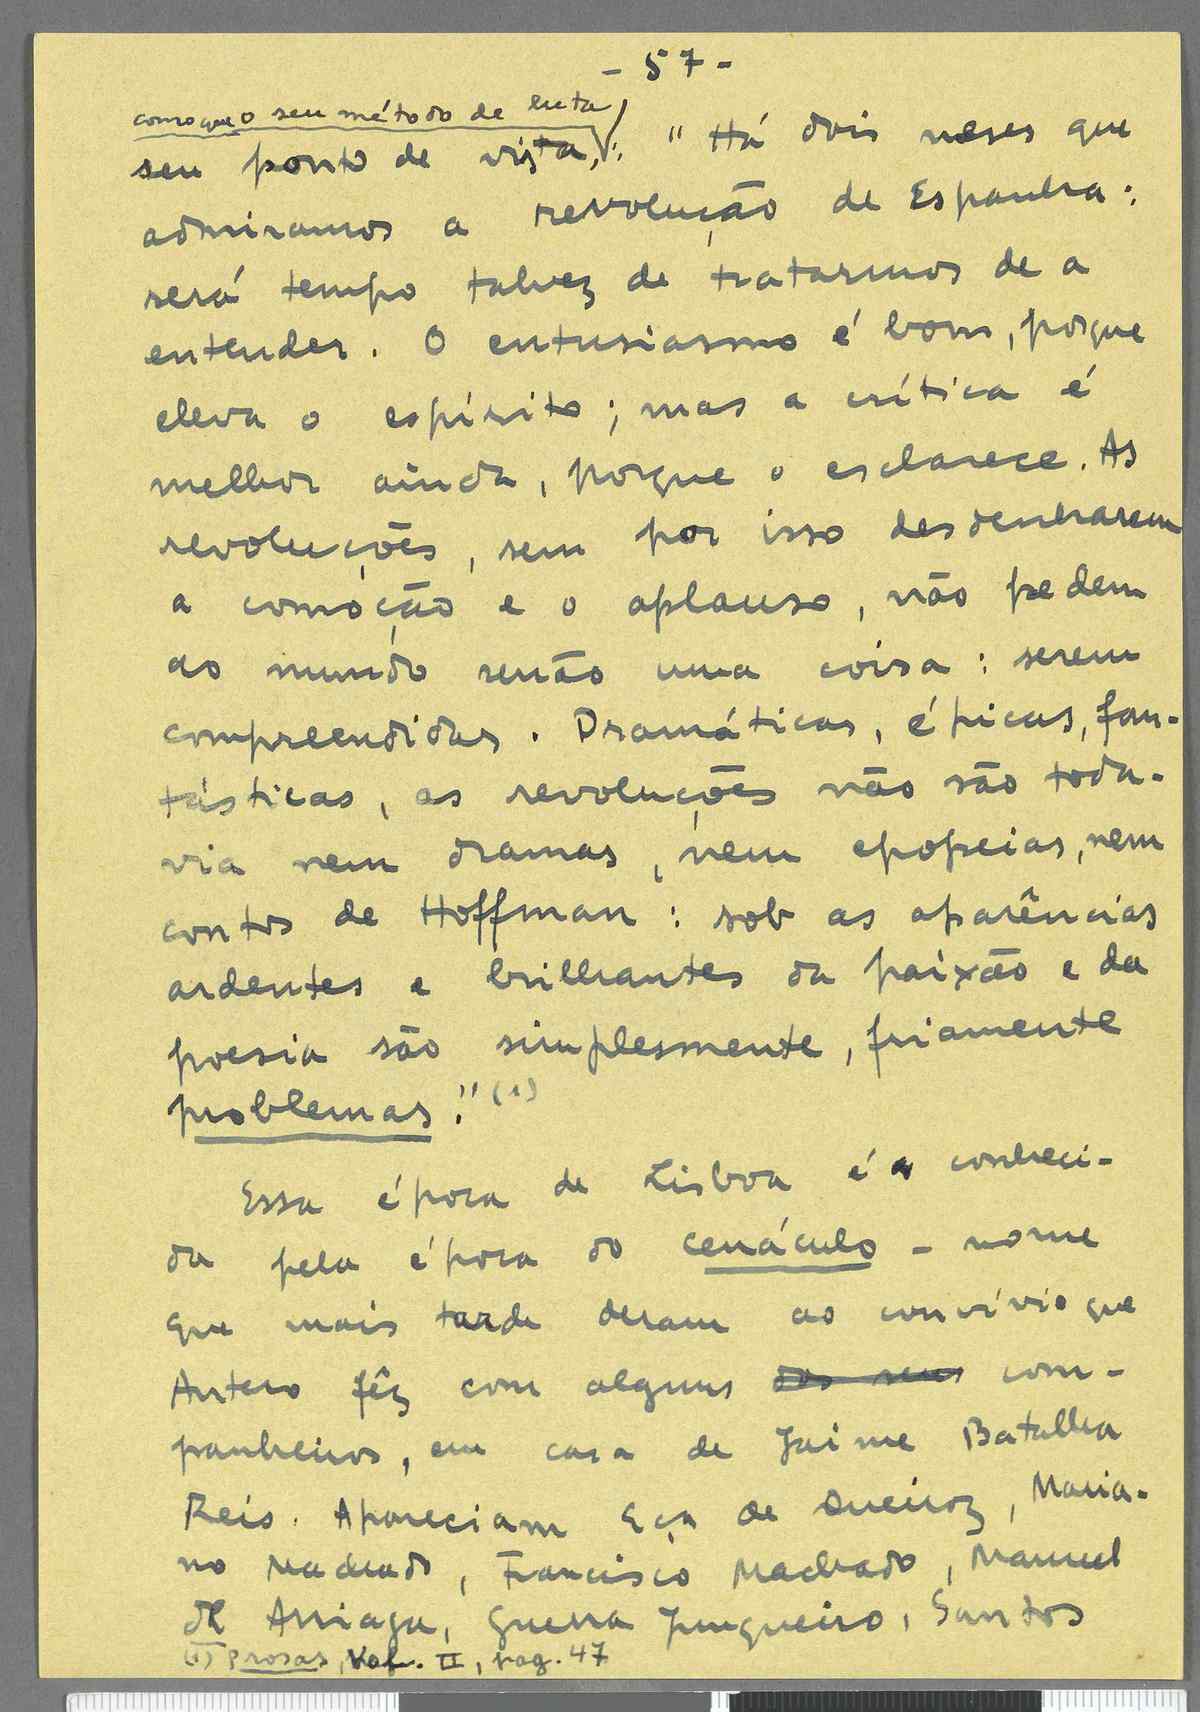 - 57 -
como que o seu método de luta
seu ponto de vista,: " Há dois meses que
admiramos a revolução de Espanha:
será tempo talvez de tratarmos de a
entender. O entusiasmo é bom, porque
eleva o espírito; mas a crítica é
melhor ainda, porque o esclarece. As
revoluções, sem por isso desdenharem
a comoção e o aplauso, não pedem
ao mundo senão uma coisa: serem
compreendidas. Dramáticas, épicas, fan-
tásticas, as revoluções não são toda-
via nem dramas, nem epopeias, nem
contos de Hoffman: sob as aparências
ardentes e brilhantes da paixão e da
poesia são simplesmente, friamente
problemas." (1)
Essa época de Lisboa é a conheci-
da pela época do cenáculo - nome
que mais tarde deram ao convívio que
Antero fêz com alguns dos seus com-
panheiros, em casa de Jaime Batalha
Reis. Apareciam Eça de Queiroz, Maria-
no Machado, Francisco Machado, Manuel
de Arriaga, Guerra Junqueiro, Santos
(1) Prosas, Vol. II, pag. 47